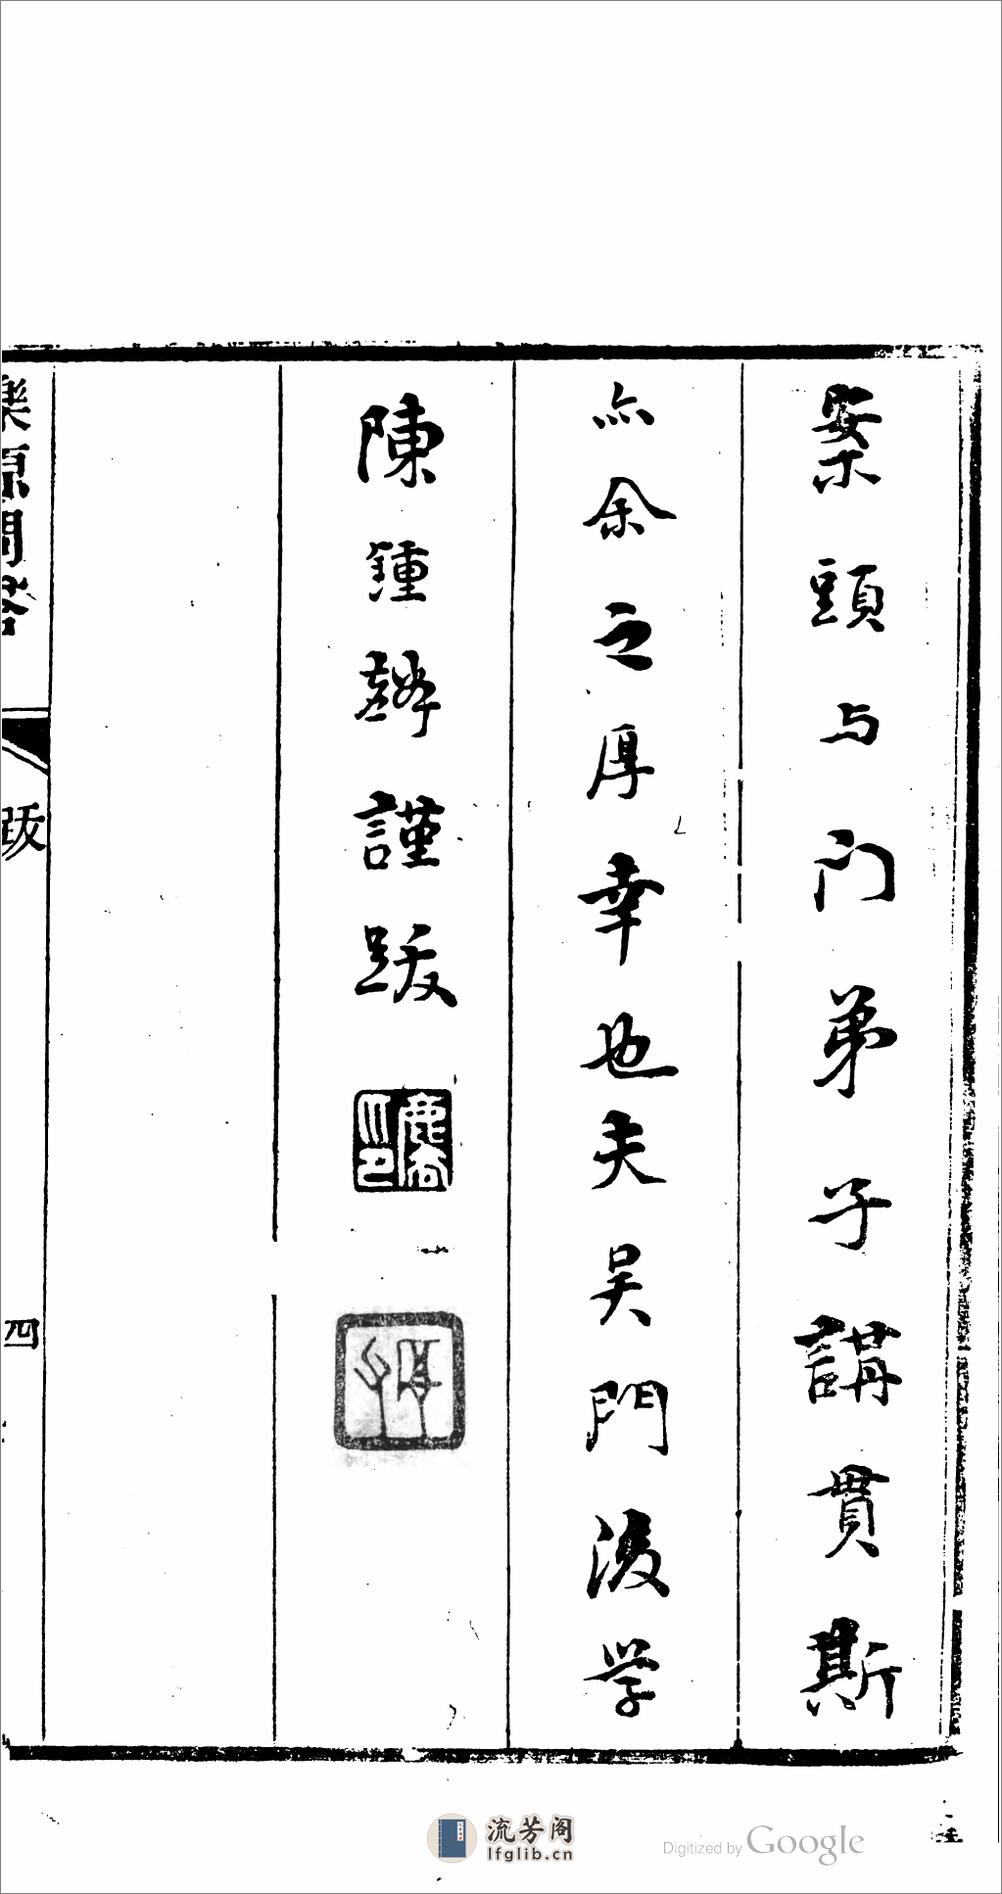 案頭与门弟子講貫斯
亦余之厚幸也夫吴門後学
陳鍾麟謹跋
樂源問答
跋
四
流芳阁
lfglib.cn
Digitized by Google